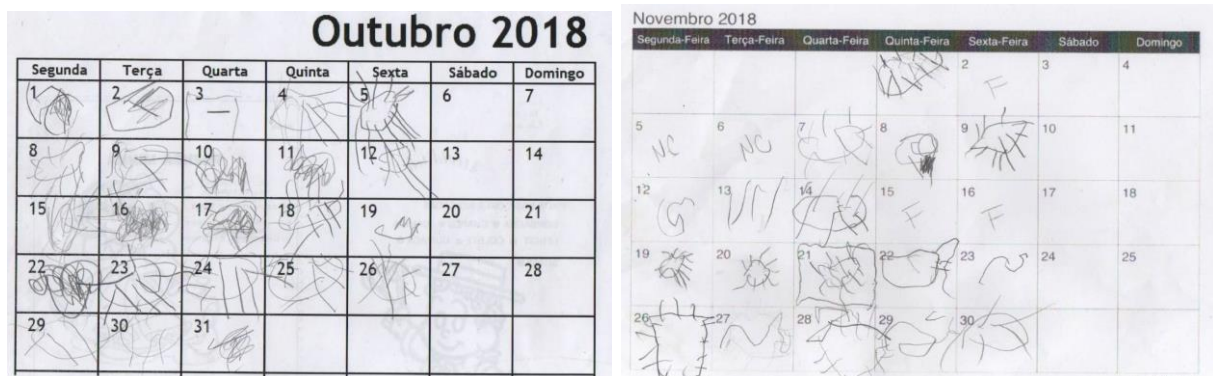 Outubro 2018
Segunda Terça Quarta Quinta Sexta Sábado Domingo
1 2 3 4 5 6 7
8 9 10 11 12 13 14
15 16 17 18 19 20 21
22 23 24 25 26 27 28
29 30 31
Novembro 2018
Segunda-Feira Terça-Feira Quarta-Feira Quinta-Feira Sexta-Feira Sábado Domingo
2 3 4
F
5 6 7 8 9 10 11
NC NC
12 13 14 15 16 17 18
F F
19 20 21 22 23 24 25
26 27 28 29 30